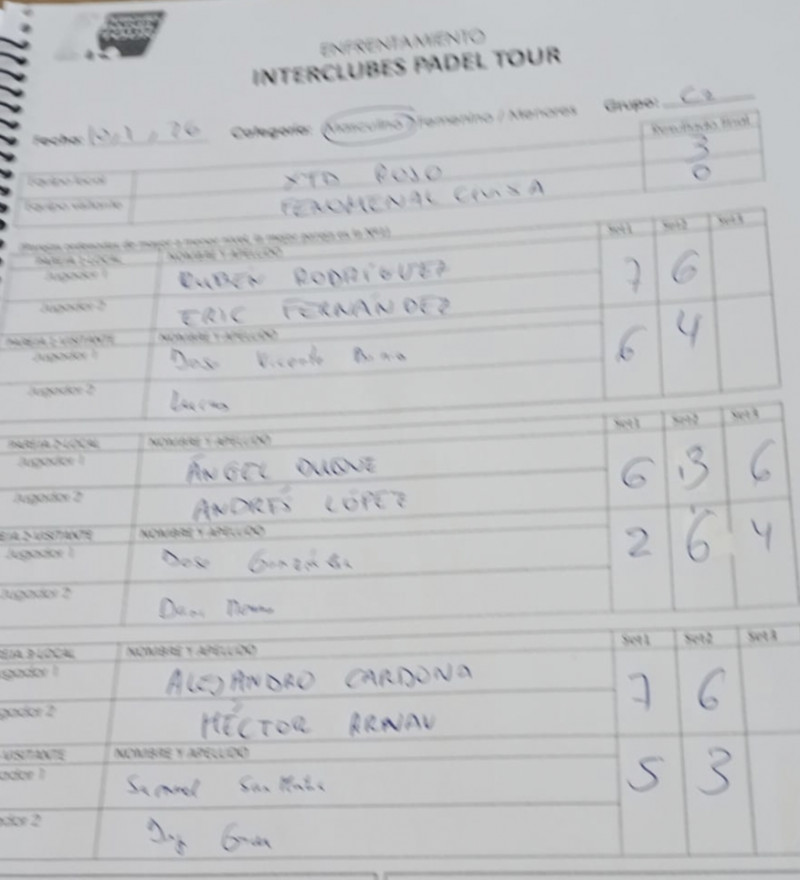 ENFRENTAMIENTO
INTERCLUBES PADEL TOUR
Fecha: 10, 1, 26 Categoría: Masculino / Femenino / Menores Grupo: C2
Resultado final
Equipo local XTD ROJO 3
Equipo visitante FENOMENAL 0
(Parejas ordenadas de mayor a menor nivel, la mejor pareja es la Nº1)
PAREJA 1 LOCAL NOMBRE Y APELLIDO Set 1 Set 2 Set 3
Jugador 1 RUBÉN RODRÍGUEZ 7 6
Jugador 2 ERIC FERNANDEZ
PAREJA 1 VISITANTE NOMBRE Y APELLIDO 6 4
Jugador 1 Vicente
Jugador 2 Lucas
PAREJA 2 LOCAL NOMBRE Y APELLIDO Set 1 Set 2 Set 3
Jugador 1 ÁNGEL DUQUE 6 3 6
Jugador 2 ANDRÉS LÓPEZ
EJA 2 VISITANTE NOMBRE Y APELLIDO 2 6 4
Jugador 1 González
Jugador 2 Dani
EJA 3 LOCAL NOMBRE Y APELLIDO Set 1 Set 2 Set 3
ugador 1 ALEJANDRO CARDONA 7 6
gador 2 HÉCTOR ARNAU
VISITANTE NOMBRE Y APELLIDO 5 3
ador 1 Samuel
dor 2